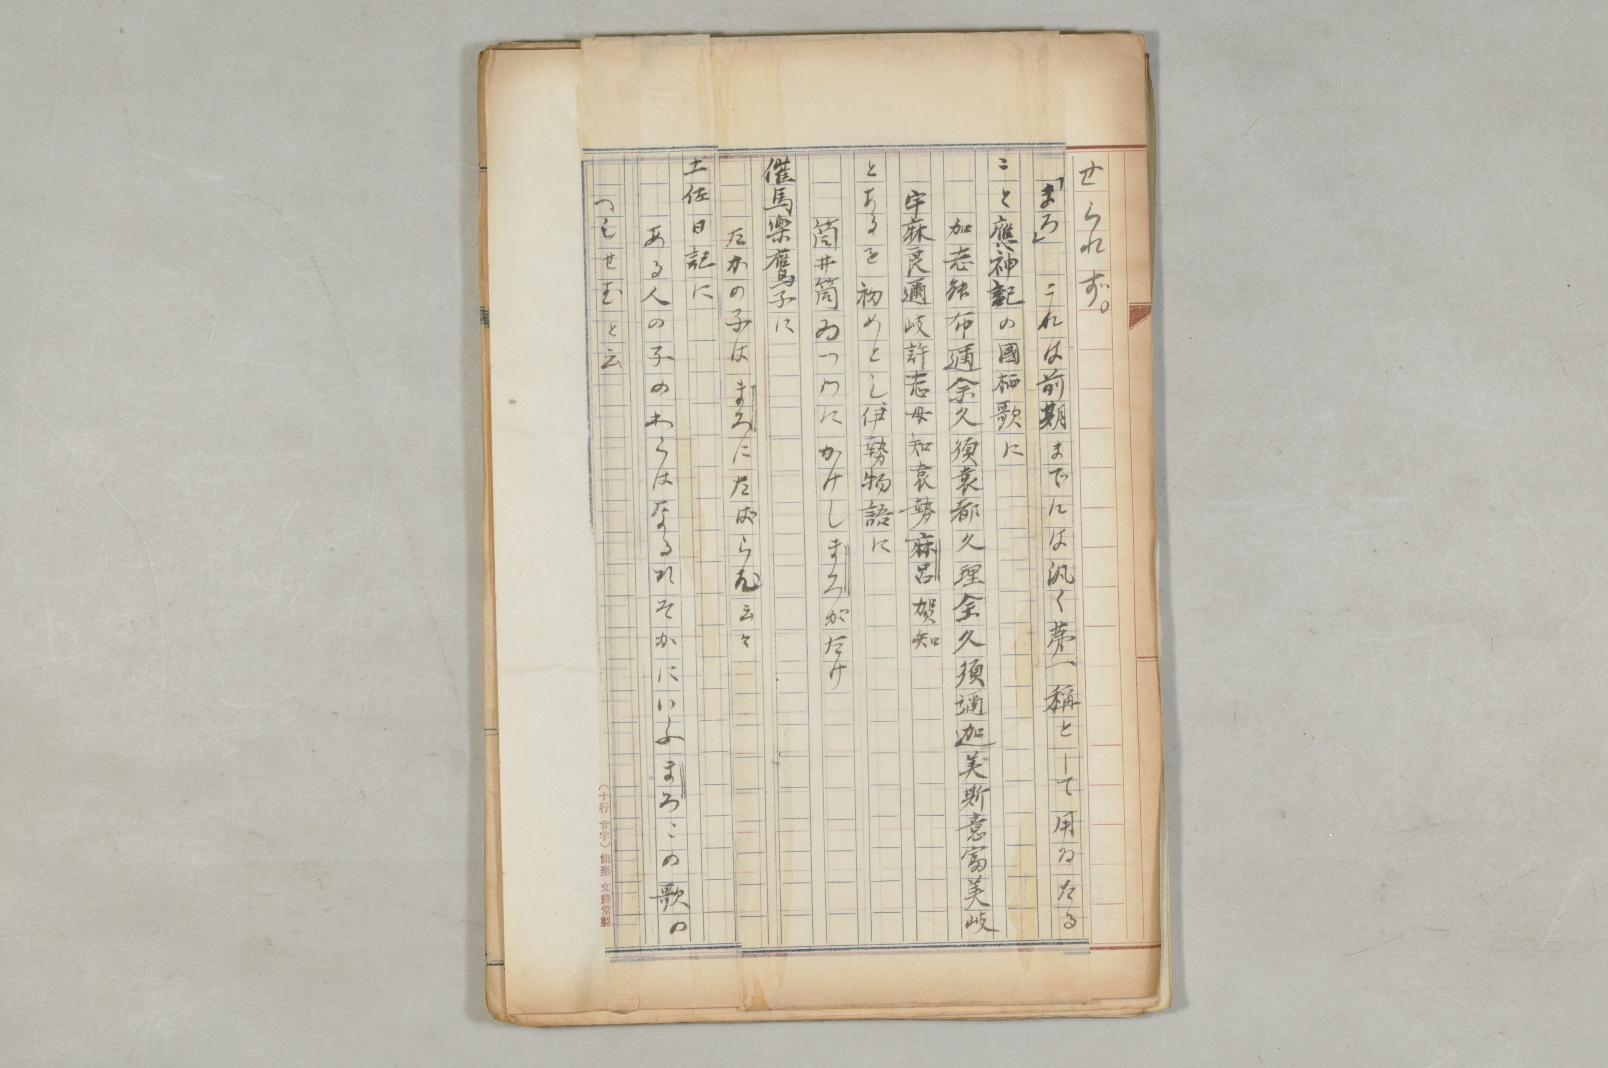 せられず。
「まろ」 これは前期までには汎く夢へ稱として用ゐたる
こと應神記の國栖歌に
加志能布邇余久須袁都久理余久須邇迦美斯意富美岐
宇麻良邇岐許志母知袁勢麻呂賀知
とあるを初めとし伊勢物語に
筒井筒ゐつつにかけしまろがたけ
催馬樂鷹子に
たかの子はまろにたばらむ云々
土佐日記に
ある人の子のわらはなるひそかにいふまろこの歌の
つミせむと云
(十行廿字) 仙臺 文勝堂製